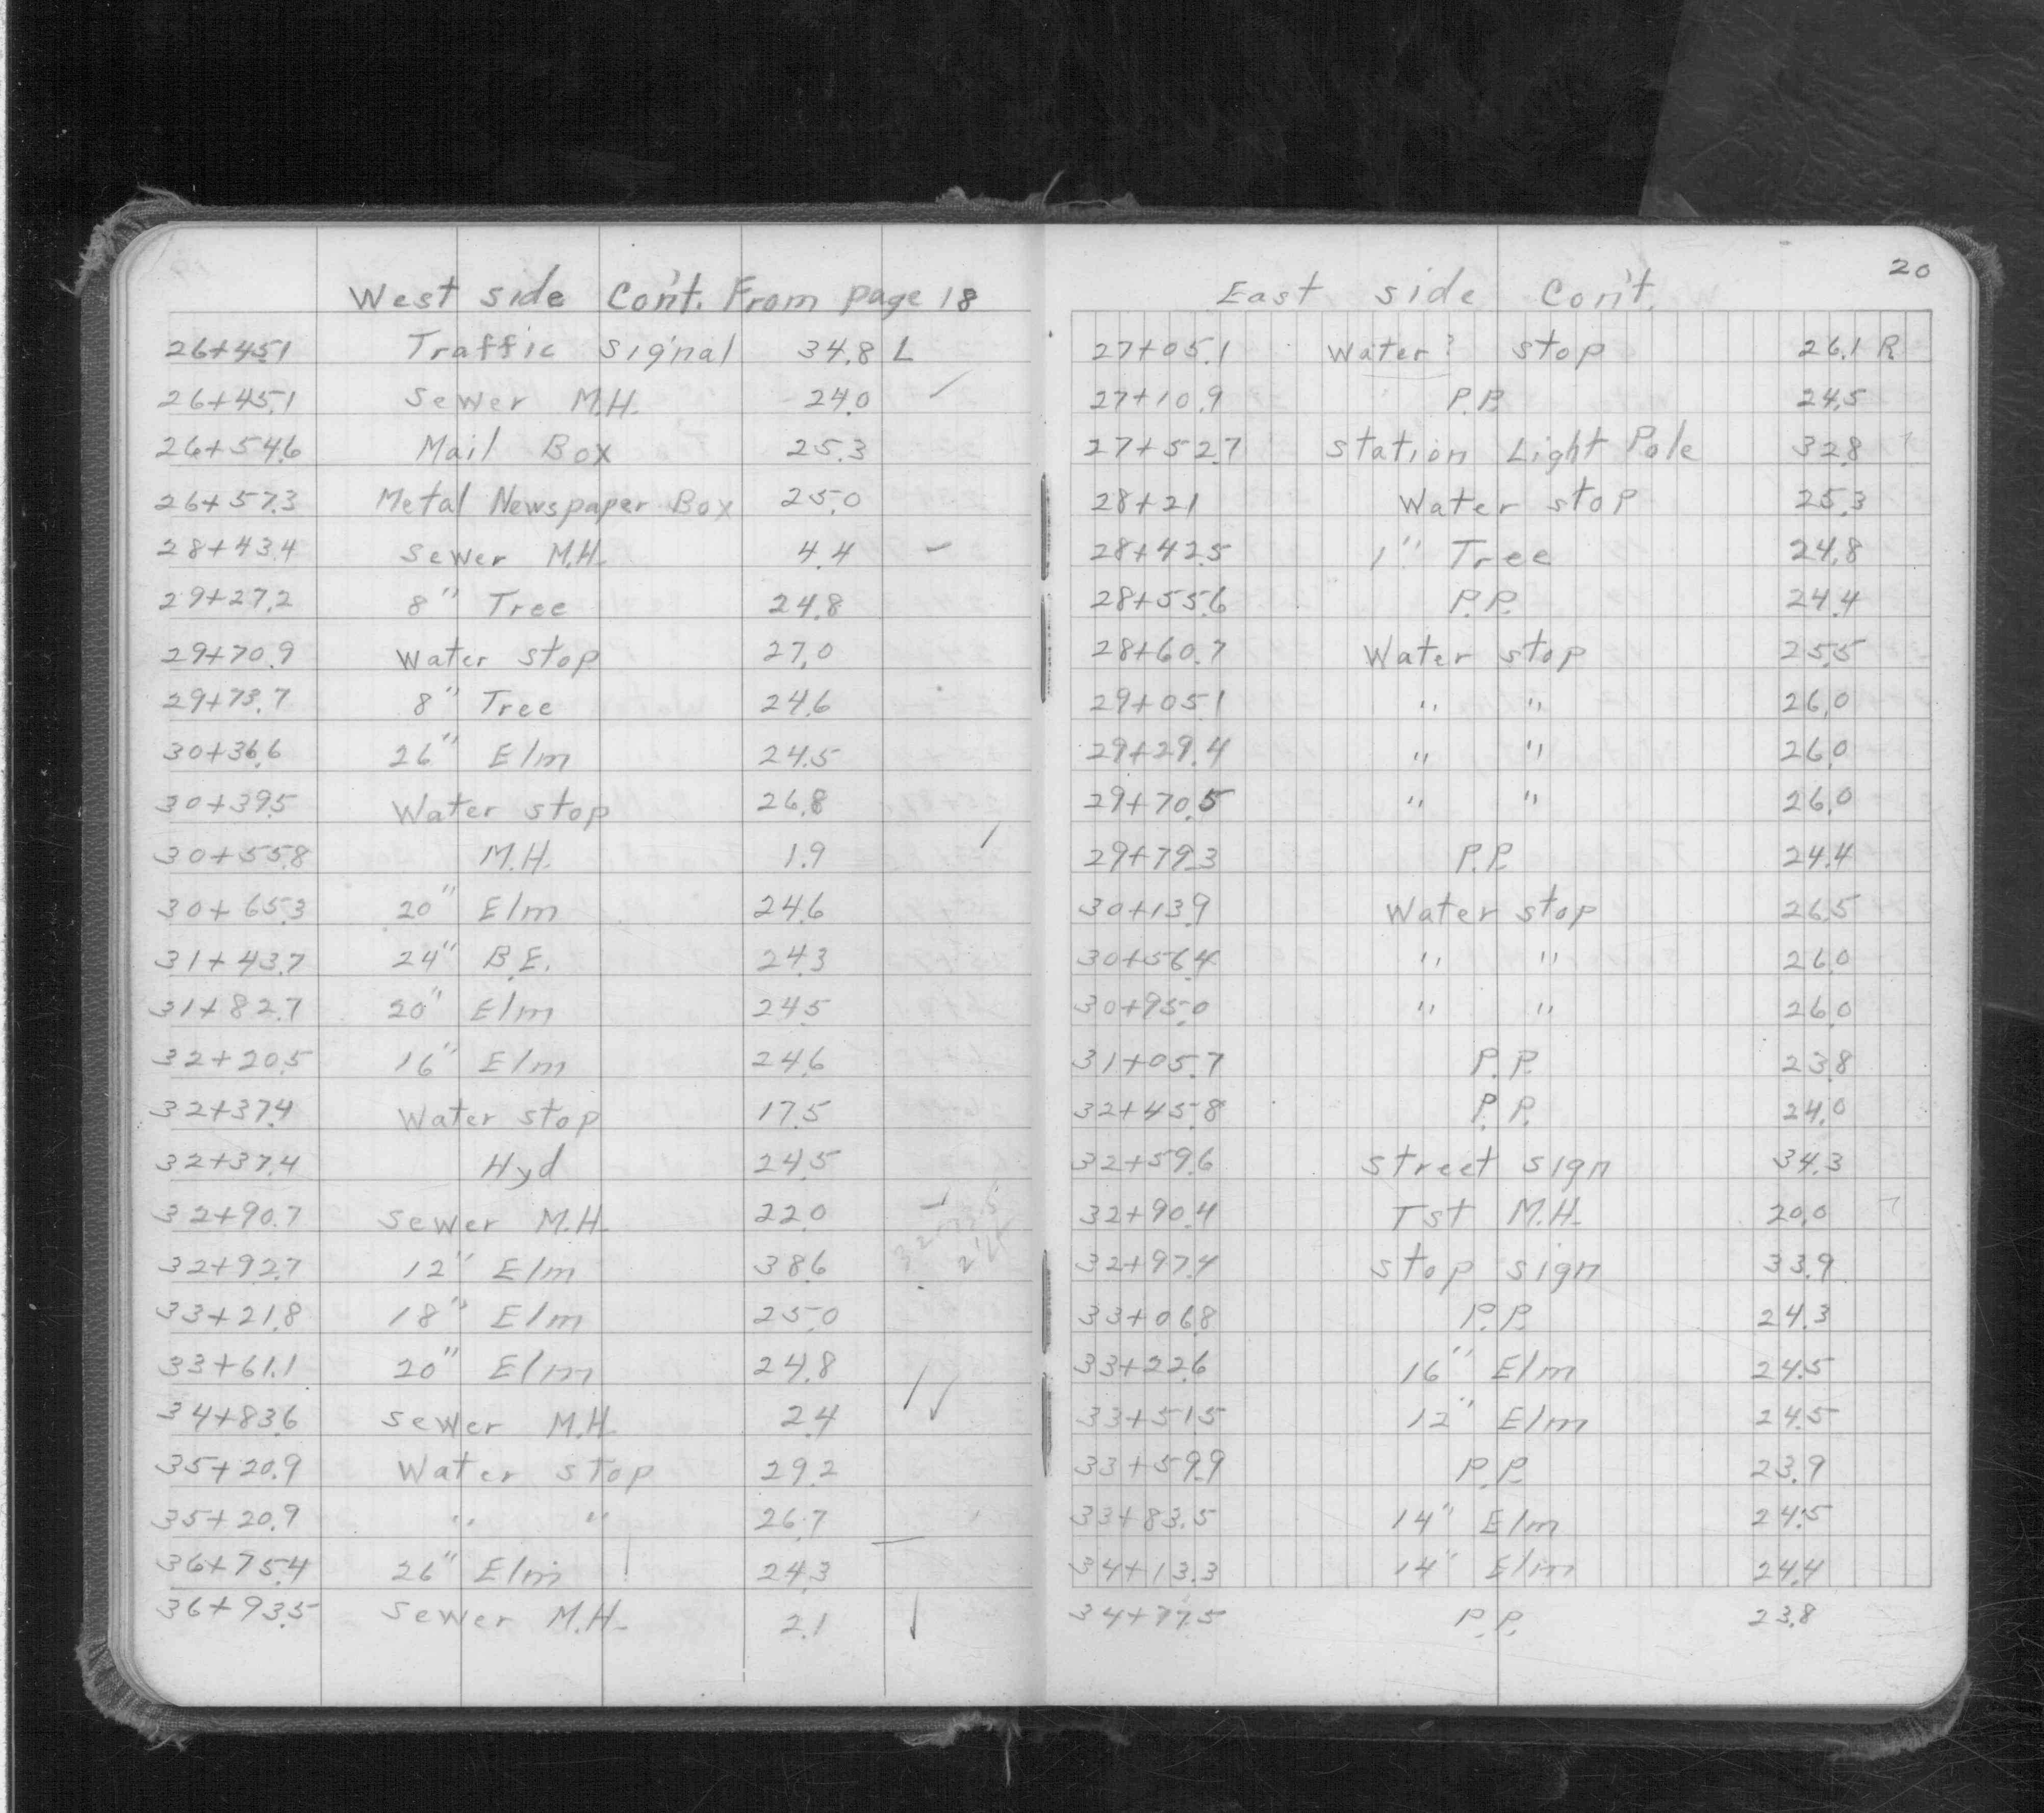 West side Con't. From page 18
26+45.1 Traffic Signal 34.8 L
26+45.1 Sewer M.H. 24.0
26+54.6 Mail Box 25.3
26+57.3 Metal Newspaper Box 25.0
28+43.4 Sewer M.H. 4.4
29+27.2 8" Tree 24.8
29+70.9 Water stop 27.0
29+73.7 8" Tree 24.6
30+36.6 26" Elm 24.5
30+39.5 Water stop 26.8
30+55.8 M.H. 1.9
30+65.3 20" Elm 24.6
31+43.7 24" B.E. 24.3
31+82.7 20" Elm 24.5
32+20.5 16" Elm 24.6
32+37.4 Water stop 17.5
32+37.4 Hyd 24.5
32+90.7 Sewer M.H. 22.0
32+92.7 12" Elm 38.6
33+21.8 18" Elm 25.0
33+61.1 20" Elm 24.8
34+83.6 Sewer M.H. 2.4
35+20.9 Water stop 29.2
35+20.9 " " 26.7
36+75.4 26" Elm 24.3
36+93.5 Sewer M.H. 2.1
20
East side Con't.
27+05.1 Water? stop 26.1 R
27+10.9 P.P. 24.5
27+52.7 Station Light Pole 32.8
28+21 Water stop 25.3
28+42.5 1" Tree 24.8
28+55.6 P.P. 24.4
28+60.7 Water stop 25.5
29+05.1 " " 26.0
29+29.4 " " 26.0
29+70.5 " " 26.0
29+79.3 P.P. 24.4
30+13.9 Water stop 26.5
30+56.4 " " 26.0
30+95.0 " " 26.0
31+05.7 P.P. 23.8
32+45.8 P.P. 24.0
32+59.6 Street sign 34.3
32+90.4 Tst M.H. 20.0
32+97.4 Stop sign 33.9
33+06.8 P.P. 24.3
33+22.6 16" Elm 24.5
33+51.5 12" Elm 24.5
33+59.9 P.P. 23.9
33+83.5 14" Elm 24.5
34+13.3 14" Elm 24.4
34+77.5 P.P. 23.8